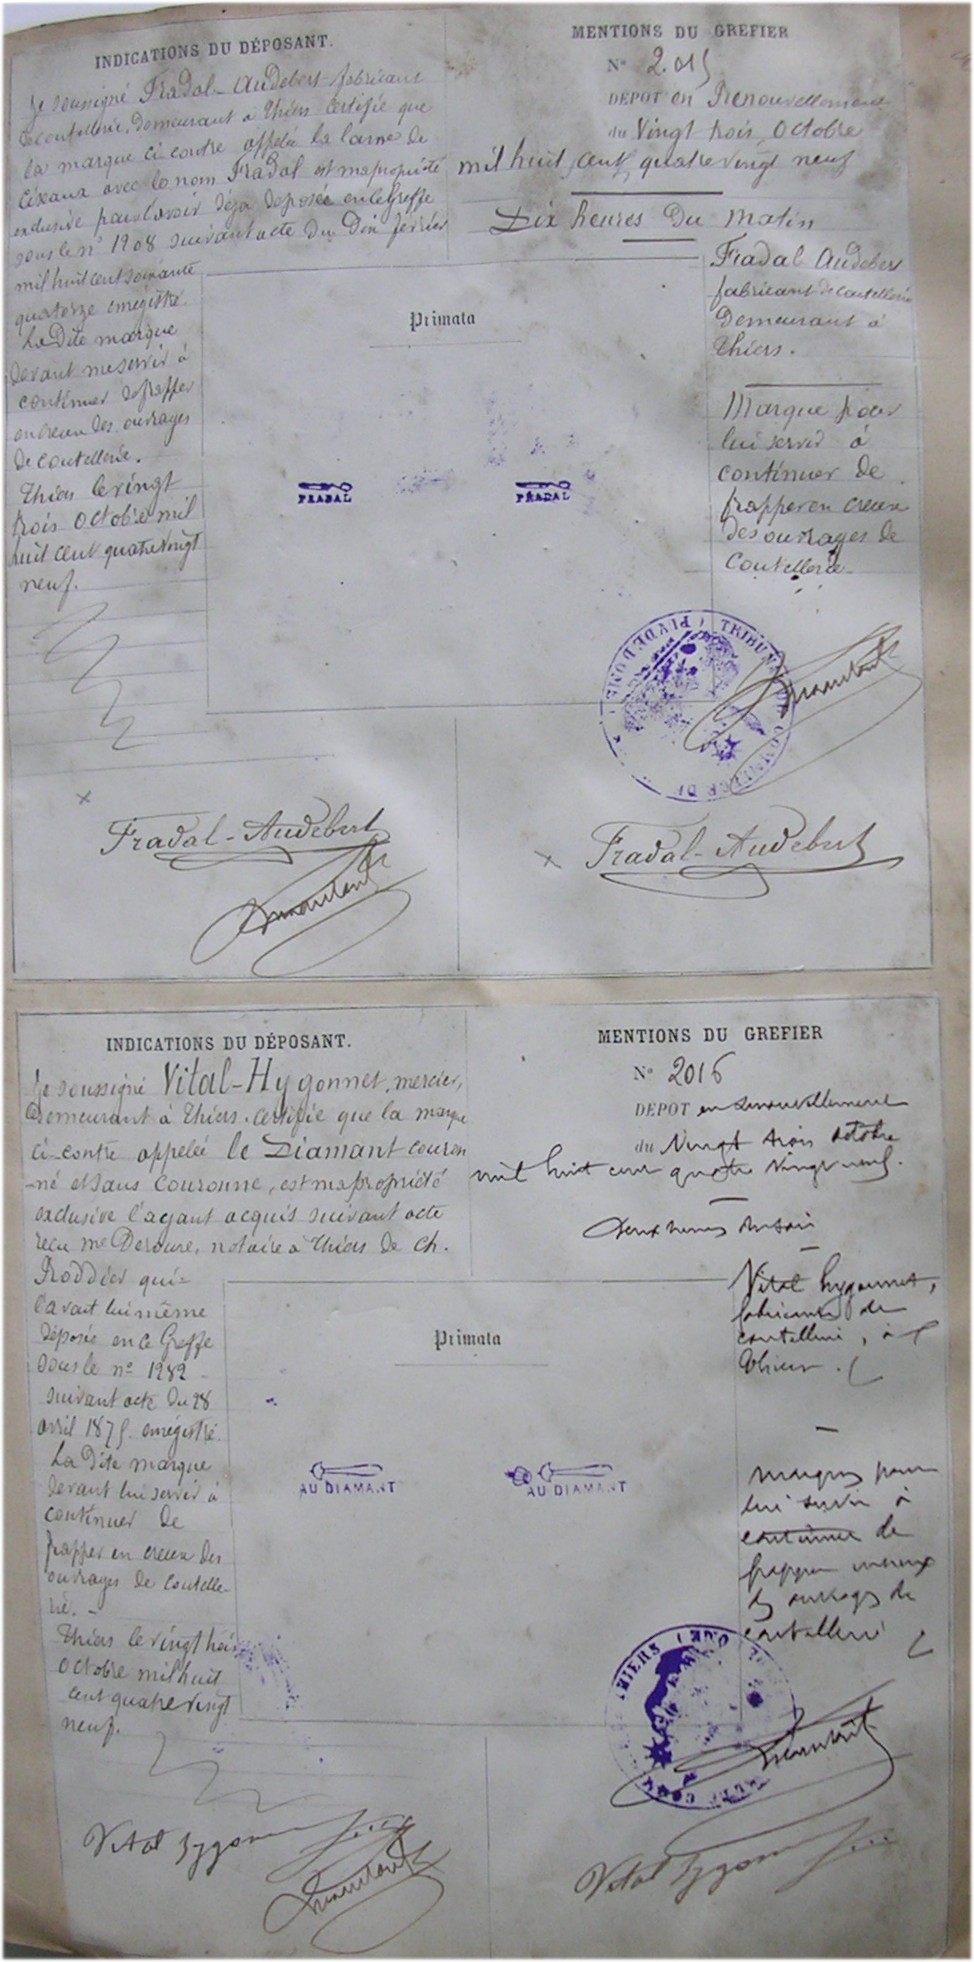 INDICATIONS DU DÉPOSANT.
Je soussigné Fradal-Audebert fabricant
de coutellerie, Demeurant à Thiers certifie que
la marque ci contre appelée la lame de
Ciseaux avec le nom Fradal est ma propriété
exclusive pour l'avoir déja deposée en ce Greffe
sous le n° 1908 suivant acte du Dix février
mil huit cent soixante
quatorze enregistré.
La Dite marque
devant me servir à
continuer de frapper
en creux des ouvrages
de coutellerie.
Thiers le vingt
trois Octobre mil
huit cent quatre vingt
neuf.
Fradal-Audebert
MENTIONS DU GREFIER
N° 2.015
DEPOT en Renouvellement
du Vingt trois Octobre
mil huit cent quatre vingt neuf
Dix heures Du Matin
Primata
FRADAL
FRADAL
Fradal Audebert
fabricant de coutellerie
Demeurant à
Thiers.
Marque pour
lui servir à
continuer de
frapper en creux
des ouvrages de
Coutellerie.
TRIBUNAL DE COMMERCE DE (PUY DE DOME)
Fradal-Audebert
INDICATIONS DU DÉPOSANT.
Je soussigné Vital-Hygonnet, mercier,
Demeurant à Thiers. Certifie que la marque
ci-contre appelée le Diamant couron
-né et sans Couronne, est ma propriété
exclusive l'ayant acquis suivant acte
reçu me Deroure, notaire à Thiers de Ch.
Roddier qui
l'avait lui même
déposée en ce Greffe
sous le n° 1282
suivant acte du 28
avril 1875. enregistré.
La Dite marque
devant lui servir à
continuer de
frapper en creux des
ouvrages de Coutelle-
rie. -
Thiers le vingt trois
Octobre mil huit
cent quatre vingt
neuf.
Vital Hygonnet
MENTIONS DU GREFIER
N° 2016
DEPOT en renouvellement
du Vingt trois octobre
mil huit cent quatre vingt neuf.
Deux heures du soir
Primata
AU DIAMANT
AU DIAMANT
Vital hygonnet,
fabricant de
coutellerie, à
Thiers.
marque pour
lui servir à
continuer de
frapper en creux
des ouvrages de
coutellerie
THIERS
Vital Hygonnet